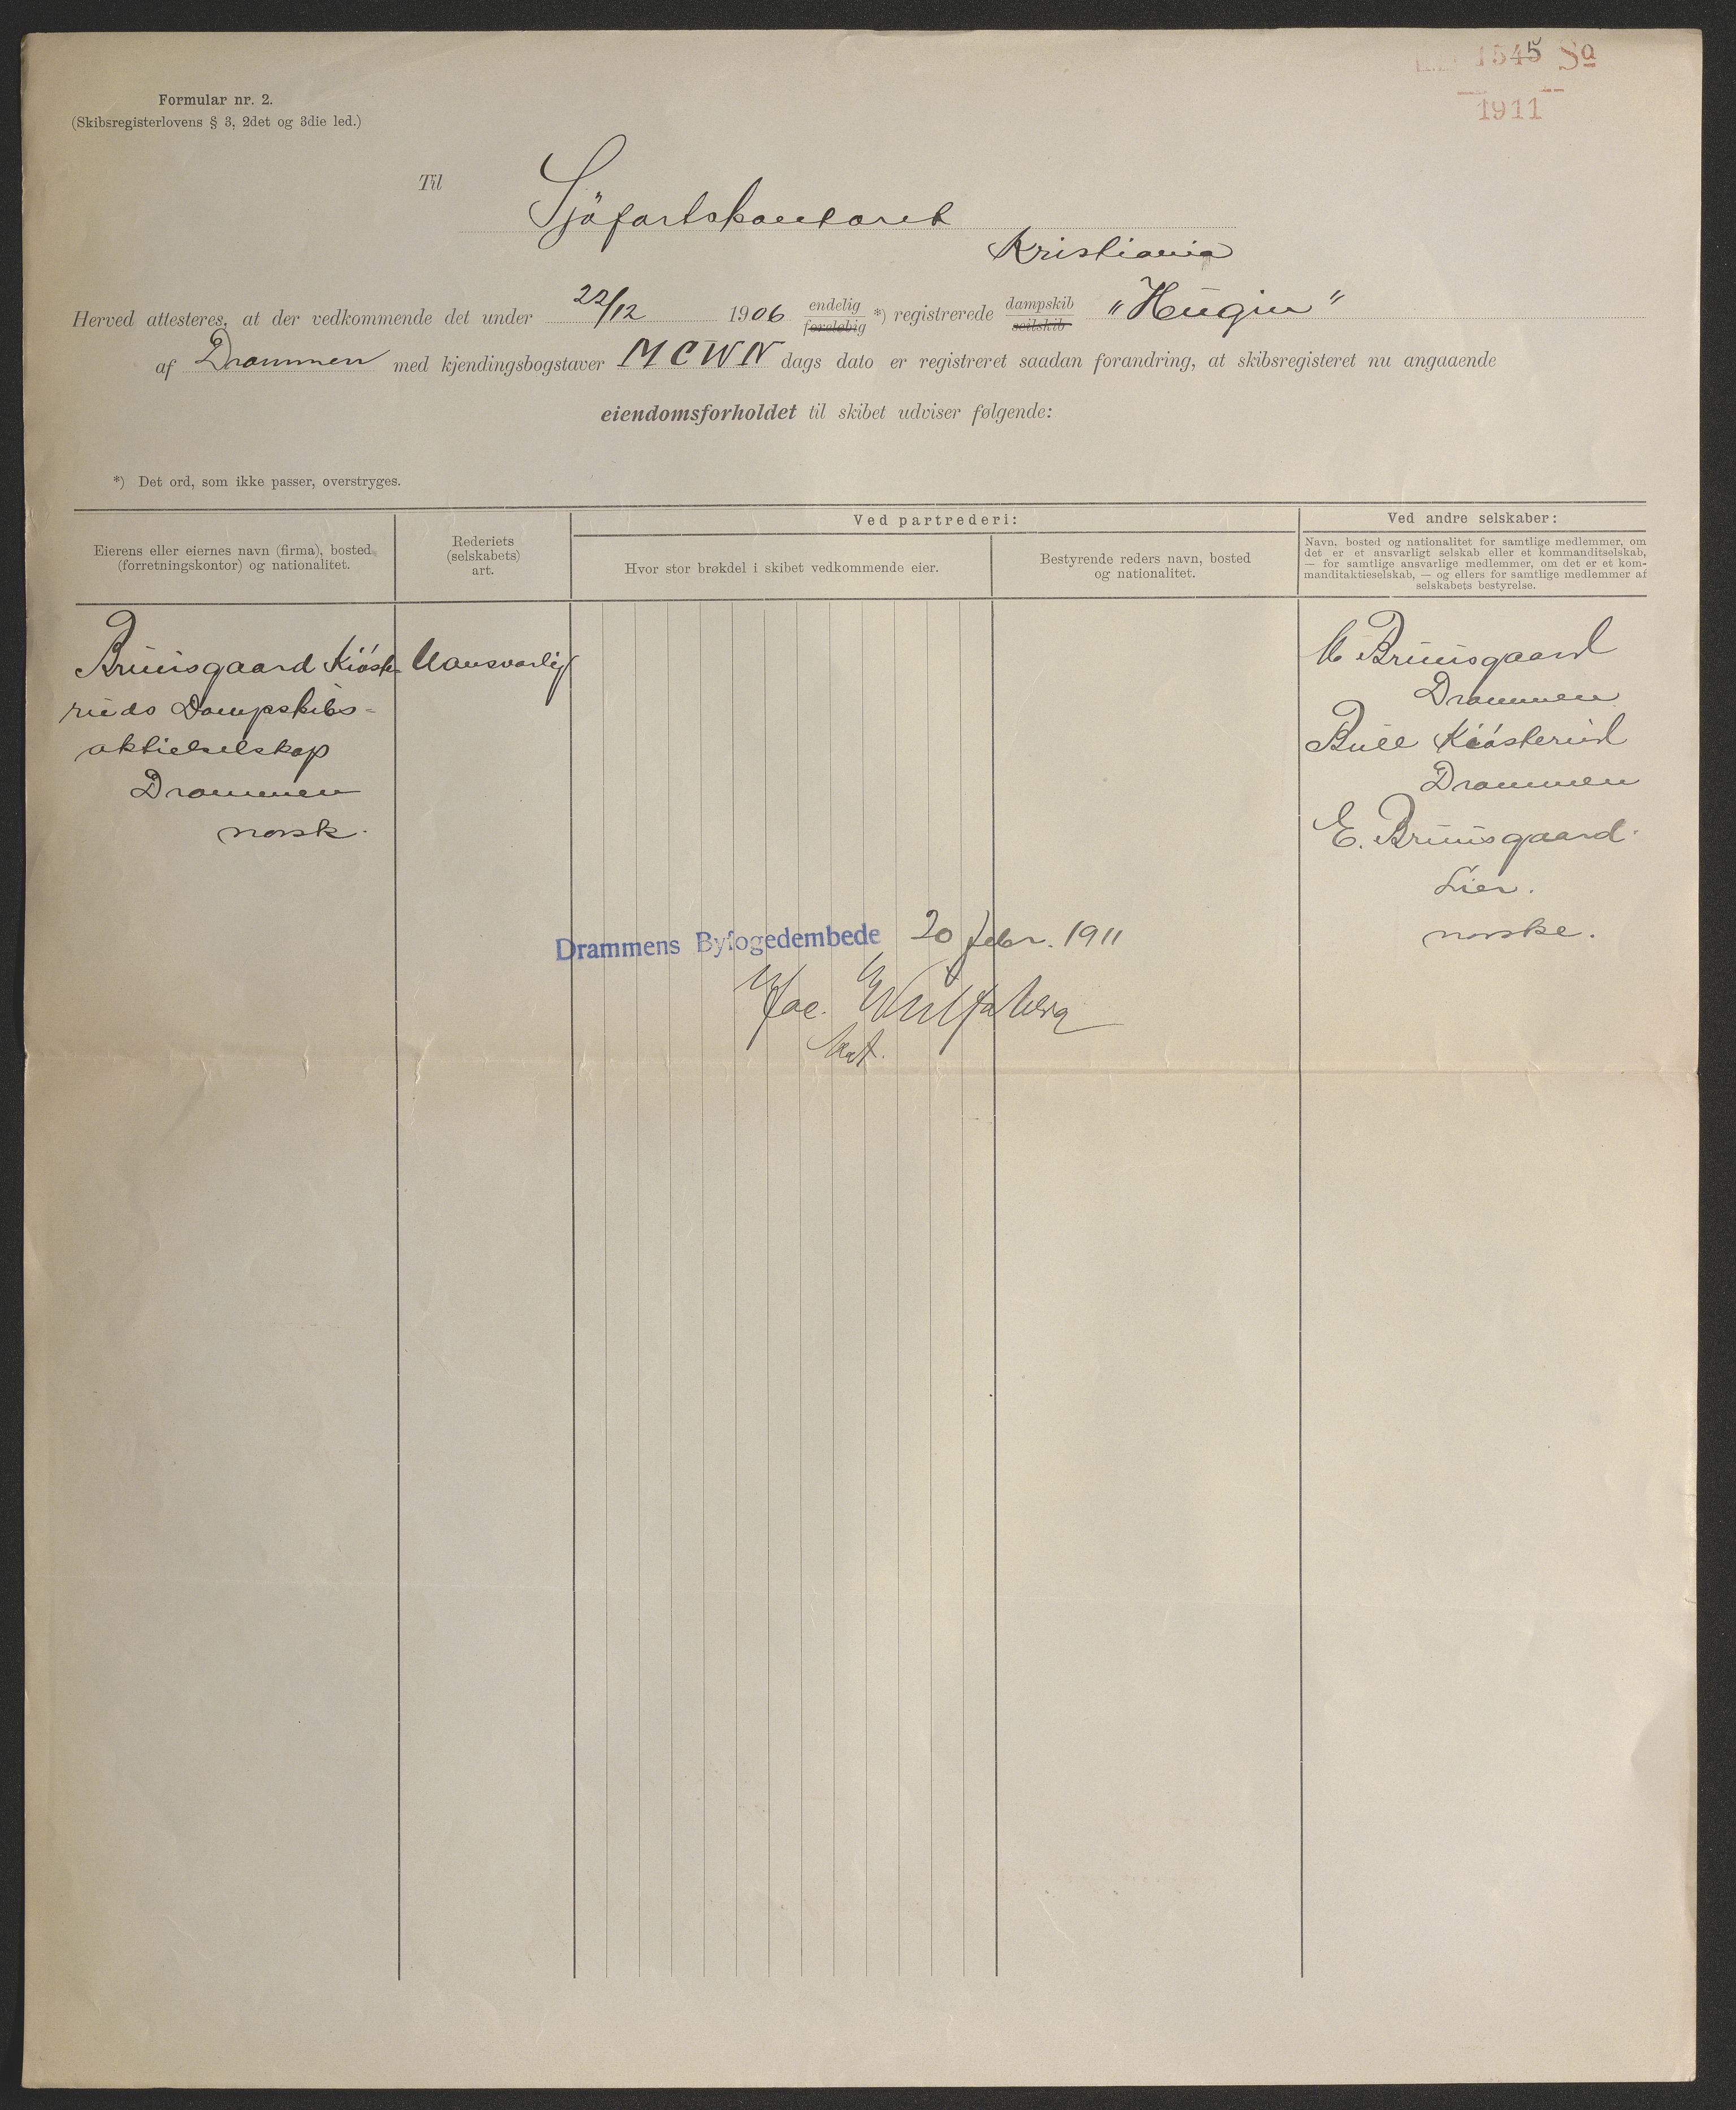 1545 Sa
1911
Formular nr. 2.
(Skibsregisterlovens § 3, 2det og 3die led.)
Til Sjöfartskontoret
Kristiania
Herved attesteres, at der vedkommende det under 22/12 1906 endelig foreløbig *) registrerede dampskib seilskib "Hugin"
af Drammen med kjendingsbogstaver MCWN dags dato er registreret saadan forandring, at skibsregisteret nu angaaende
eiendomsforholdet til skibet udviser følgende:
*) Det ord, som ikke passer, overstryges.
Eierens eller eiernes navn (firma), bosted
(forretningskontor) og nationalitet.
Rederiets
(selskabets)
art.
Ved partrederi:
Hvor stor brøkdel i skibet vedkommende eier.
Bestyrende reders navn, bosted
og nationalitet.
Ved andre selskaber:
Navn, bosted og nationalitet for samtlige medlemmer, om
det er et ansvarligt selskab eller et kommanditselskab,
— for samtlige ansvarlige medlemmer, om det er et kom-
manditaktieselskab, — og ellers for samtlige medlemmer af
selskabets bestyrelse.
Bruusgaard Kiöste-
ruds Dampskibs-
aktieselskap
Drammen
norsk.
Uansvarlig
Bruusgaard
Drammen
Bull Kiösterud
Drammen
E. Bruusgaard.
Lier.
norske.
Drammens Byfogedembede 20 febr. 1911
Jac. Wulfsberg